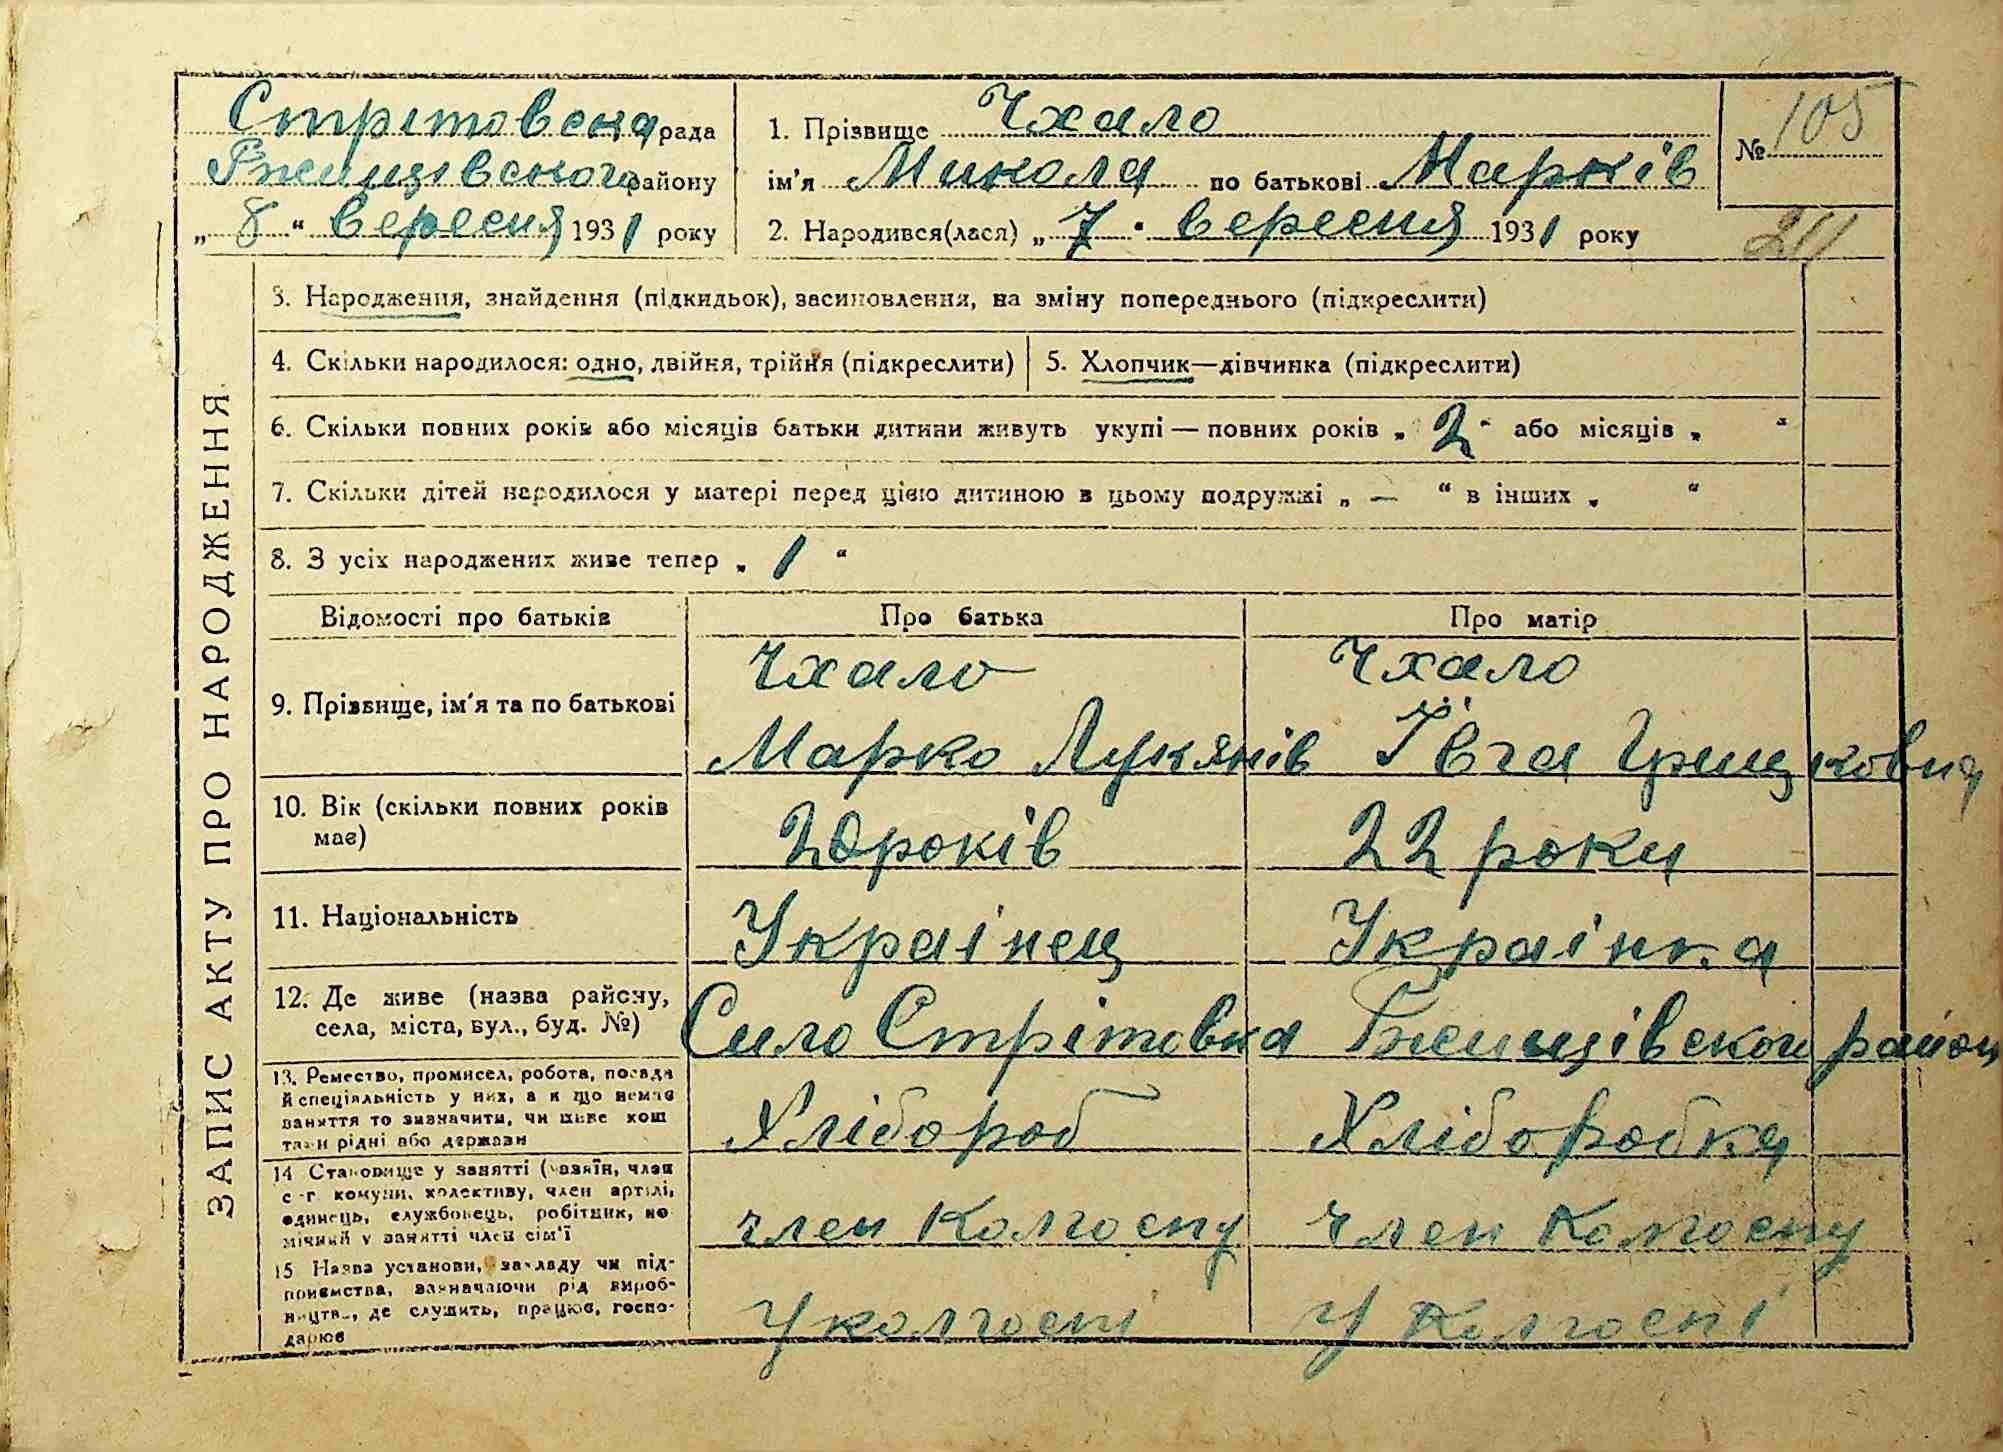 Стрітовска рада
Ржищівского району
„ 8 “ вересня 1931 року
1. Прізвище Чхало
ім'я Микола по батькові Марків
2. Народився(лася) „ 7 “ вересня 1931 року
№ 105
ЗАПИС АКТУ ПРО НАРОДЖЕННЯ
3. Народження, знайдення (підкидьок), засиновлення, на зміну попереднього (підкреслити)
4. Скільки народилося: одно, двійня, трійня (підкреслити)
5. Хлопчик—дівчинка (підкреслити)
6. Скільки повних років або місяців батьки дитини живуть укупі — повних років „ 2 “ або місяців „ “
7. Скільки дітей народилося у матері перед цією дитиною в цьому подружжі „ — “ в інших „ “
8. З усіх народжених живе тепер „ 1 “
Відомості про батьків Про батька Про матір
9. Прізвище, ім'я та по батькові
Чхало
Марко Лукянів
Чхало
Ївга Грицковна
10. Вік (скільки повних років
має)
20 років
22 роки
11. Національність
Украінец
Украінка
12. Де живе (назва району,
села, міста, вул., буд. №)
Село Стрітовка Ржищівского район
13. Ремество, промисел, робота, посада
й спеціяльність у них, а як що немає
заняття то зазначити, чи живе кош
тами рідні або держави
Хлібороб
Хліборобка
14 Становище у занятті (хазяїн, член
с-г. комуни, колективу, член артілі,
одинець, службовець, робітник, по
мічний у занятті член сім'ї
член колгоспу
член колгоспу
15 Назва установи, закладу чи під-
приємства, зазначаючи рід вироб-
ництва, де служить, працює, госпо-
дарює
У колгоспі
У колгоспі